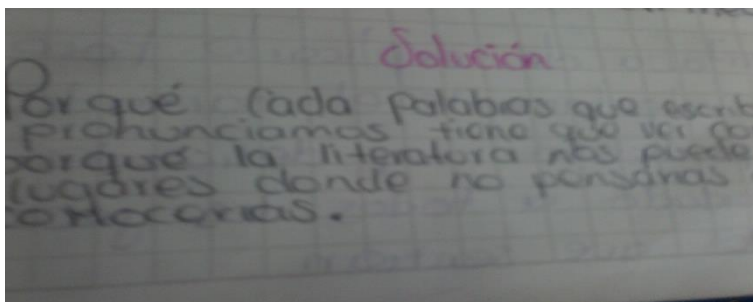 Solución
Porqué Cada palabras que escrib
pronunciamos tiene que ver co
porqué la literatura nos puede
lugares donde no pensarias
conocerias.